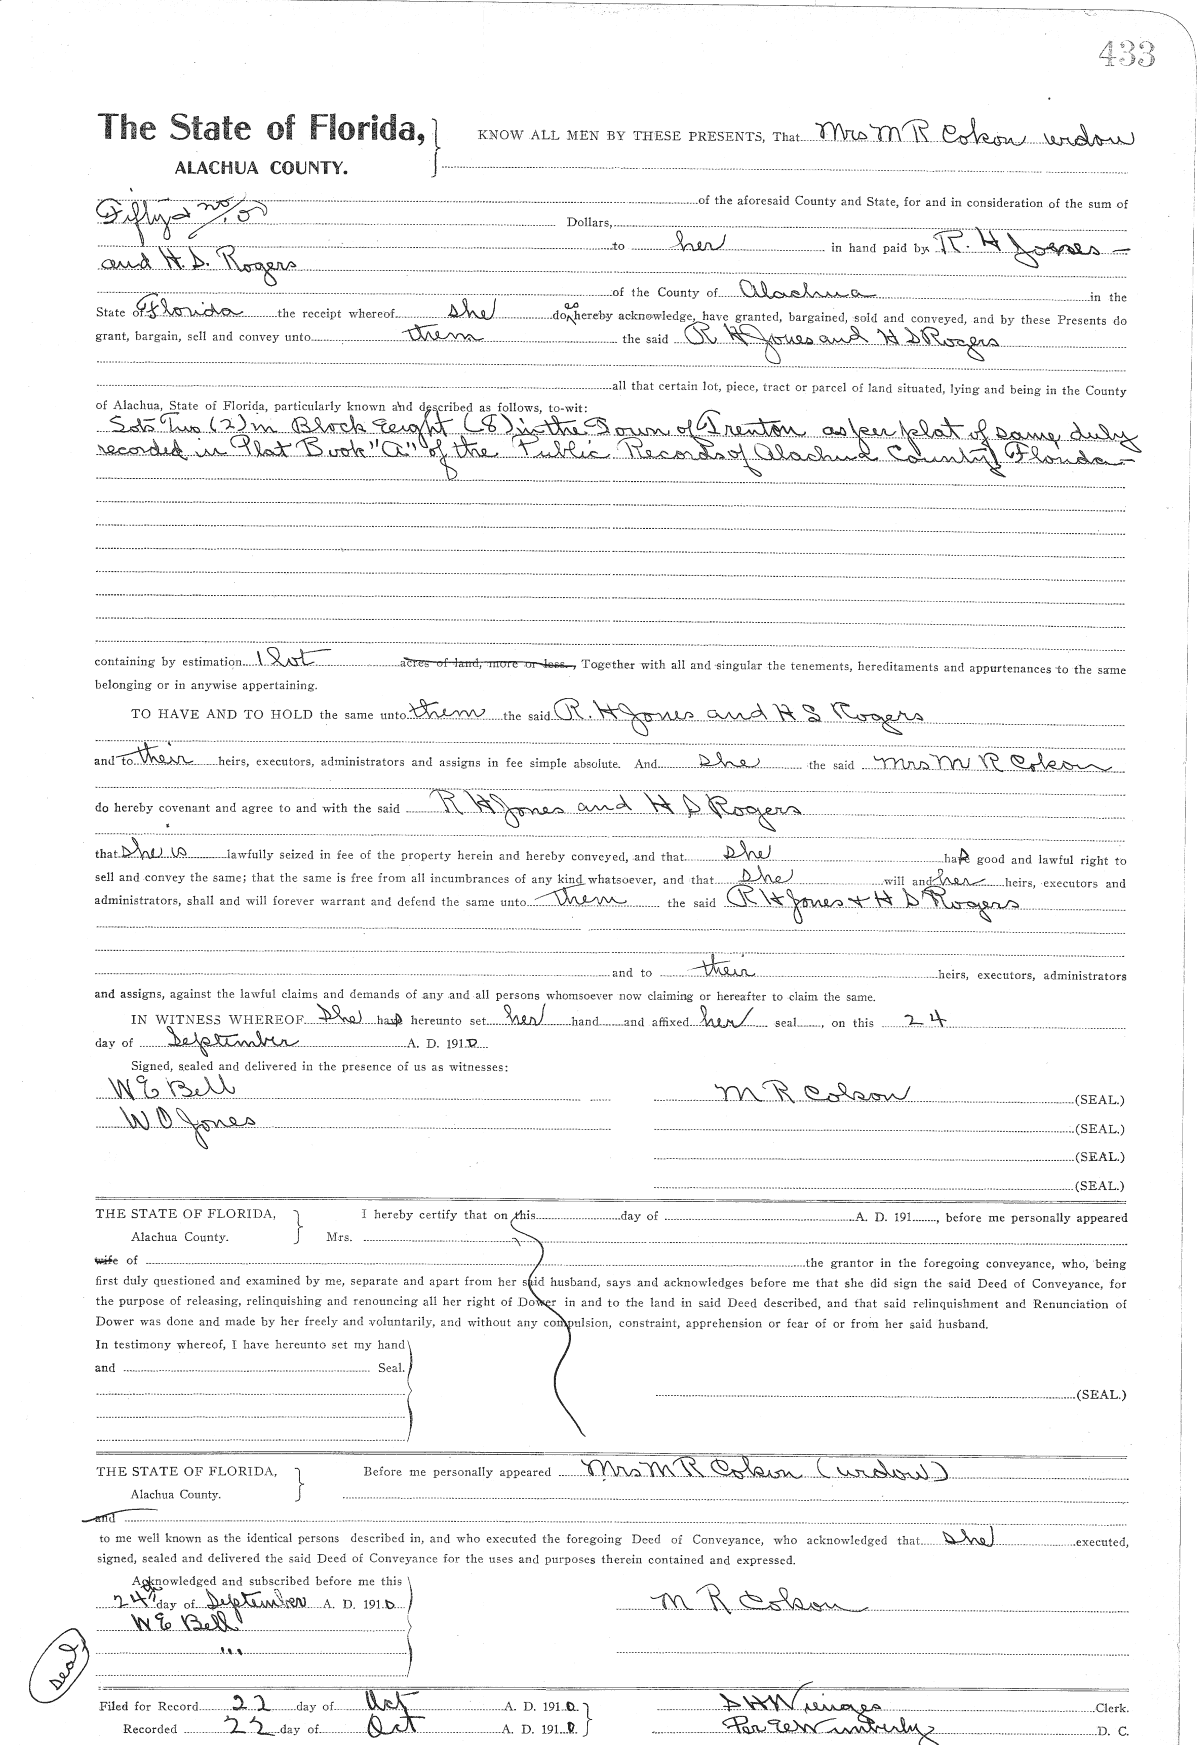 433
The State of Florida, KNOW ALL MEN BY THESE PRESENTS, That Mrs M R Colson widow
ALACHUA COUNTY.
of the aforesaid County and State, for and in consideration of the sum of
Fifty & no/00 Dollars,
to her in hand paid by R. H Jones
and H. S. Rogers
of the County of Alachua in the
State of Florida the receipt whereof she does hereby acknowledge, have granted, bargained, sold and conveyed, and by these Presents do
grant, bargain, sell and convey unto them the said R H Jones and H S Rogers
all that certain lot, piece, tract or parcel of land situated, lying and being in the County
of Alachua, State of Florida, particularly known and described as follows, to-wit:
Lots Two (2) in Block Eeight (8) in the Town of Trenton as per plat of same, duly
recorded in Plat Book "A" of the Public Records of Alachua County, Florida-
containing by estimation 1 lot acres of land, more or less., Together with all and singular the tenements, hereditaments and appurtenances to the same
belonging or in anywise appertaining.
TO HAVE AND TO HOLD the same unto them the said R. H Jones and H S Rogers
and to their heirs, executors, administrators and assigns in fee simple absolute. And she the said Mrs M R Colson
do hereby covenant and agree to and with the said R H Jones and H S Rogers
that she is lawfully seized in fee of the property herein and hereby conveyed, and that she has good and lawful right to
sell and convey the same; that the same is free from all incumbrances of any kind whatsoever, and that she will and her heirs, executors and
administrators, shall and will forever warrant and defend the same unto them the said R H Jones & H S Rogers
and to their heirs, executors, administrators
and assigns, against the lawful claims and demands of any and all persons whomsoever now claiming or hereafter to claim the same.
IN WITNESS WHEREOF She has hereunto set her hand and affixed her seal, on this 24
day of September A. D. 1910.
Signed, sealed and delivered in the presence of us as witnesses:
W E Bell M R Colson (SEAL.)
W O Jones (SEAL.)
(SEAL.)
(SEAL.)
THE STATE OF FLORIDA, I hereby certify that on this day of A. D. 191, before me personally appeared
Alachua County. Mrs.
wife of the grantor in the foregoing conveyance, who, being
first duly questioned and examined by me, separate and apart from her said husband, says and acknowledges before me that she did sign the said Deed of Conveyance, for
the purpose of releasing, relinquishing and renouncing all her right of Dower in and to the land in said Deed described, and that said relinquishment and Renunciation of
Dower was done and made by her freely and voluntarily, and without any compulsion, constraint, apprehension or fear of or from her said husband.
In testimony whereof, I have hereunto set my hand
and Seal.
(SEAL.)
THE STATE OF FLORIDA, Before me personally appeared Mrs M R Colson (widow)
Alachua County.
and
to me well known as the identical persons described in, and who executed the foregoing Deed of Conveyance, who acknowledged that she executed,
signed, sealed and delivered the said Deed of Conveyance for the uses and purposes therein contained and expressed.
Acknowledged and subscribed before me this
24th day of September A. D. 1910 M R Colson
W E Bell
Seal
Filed for Record 22 day of Oct A. D. 1910. S H Wienges Clerk.
Recorded 22 day of Oct A. D. 1910. Per E W Wimberly D. C.